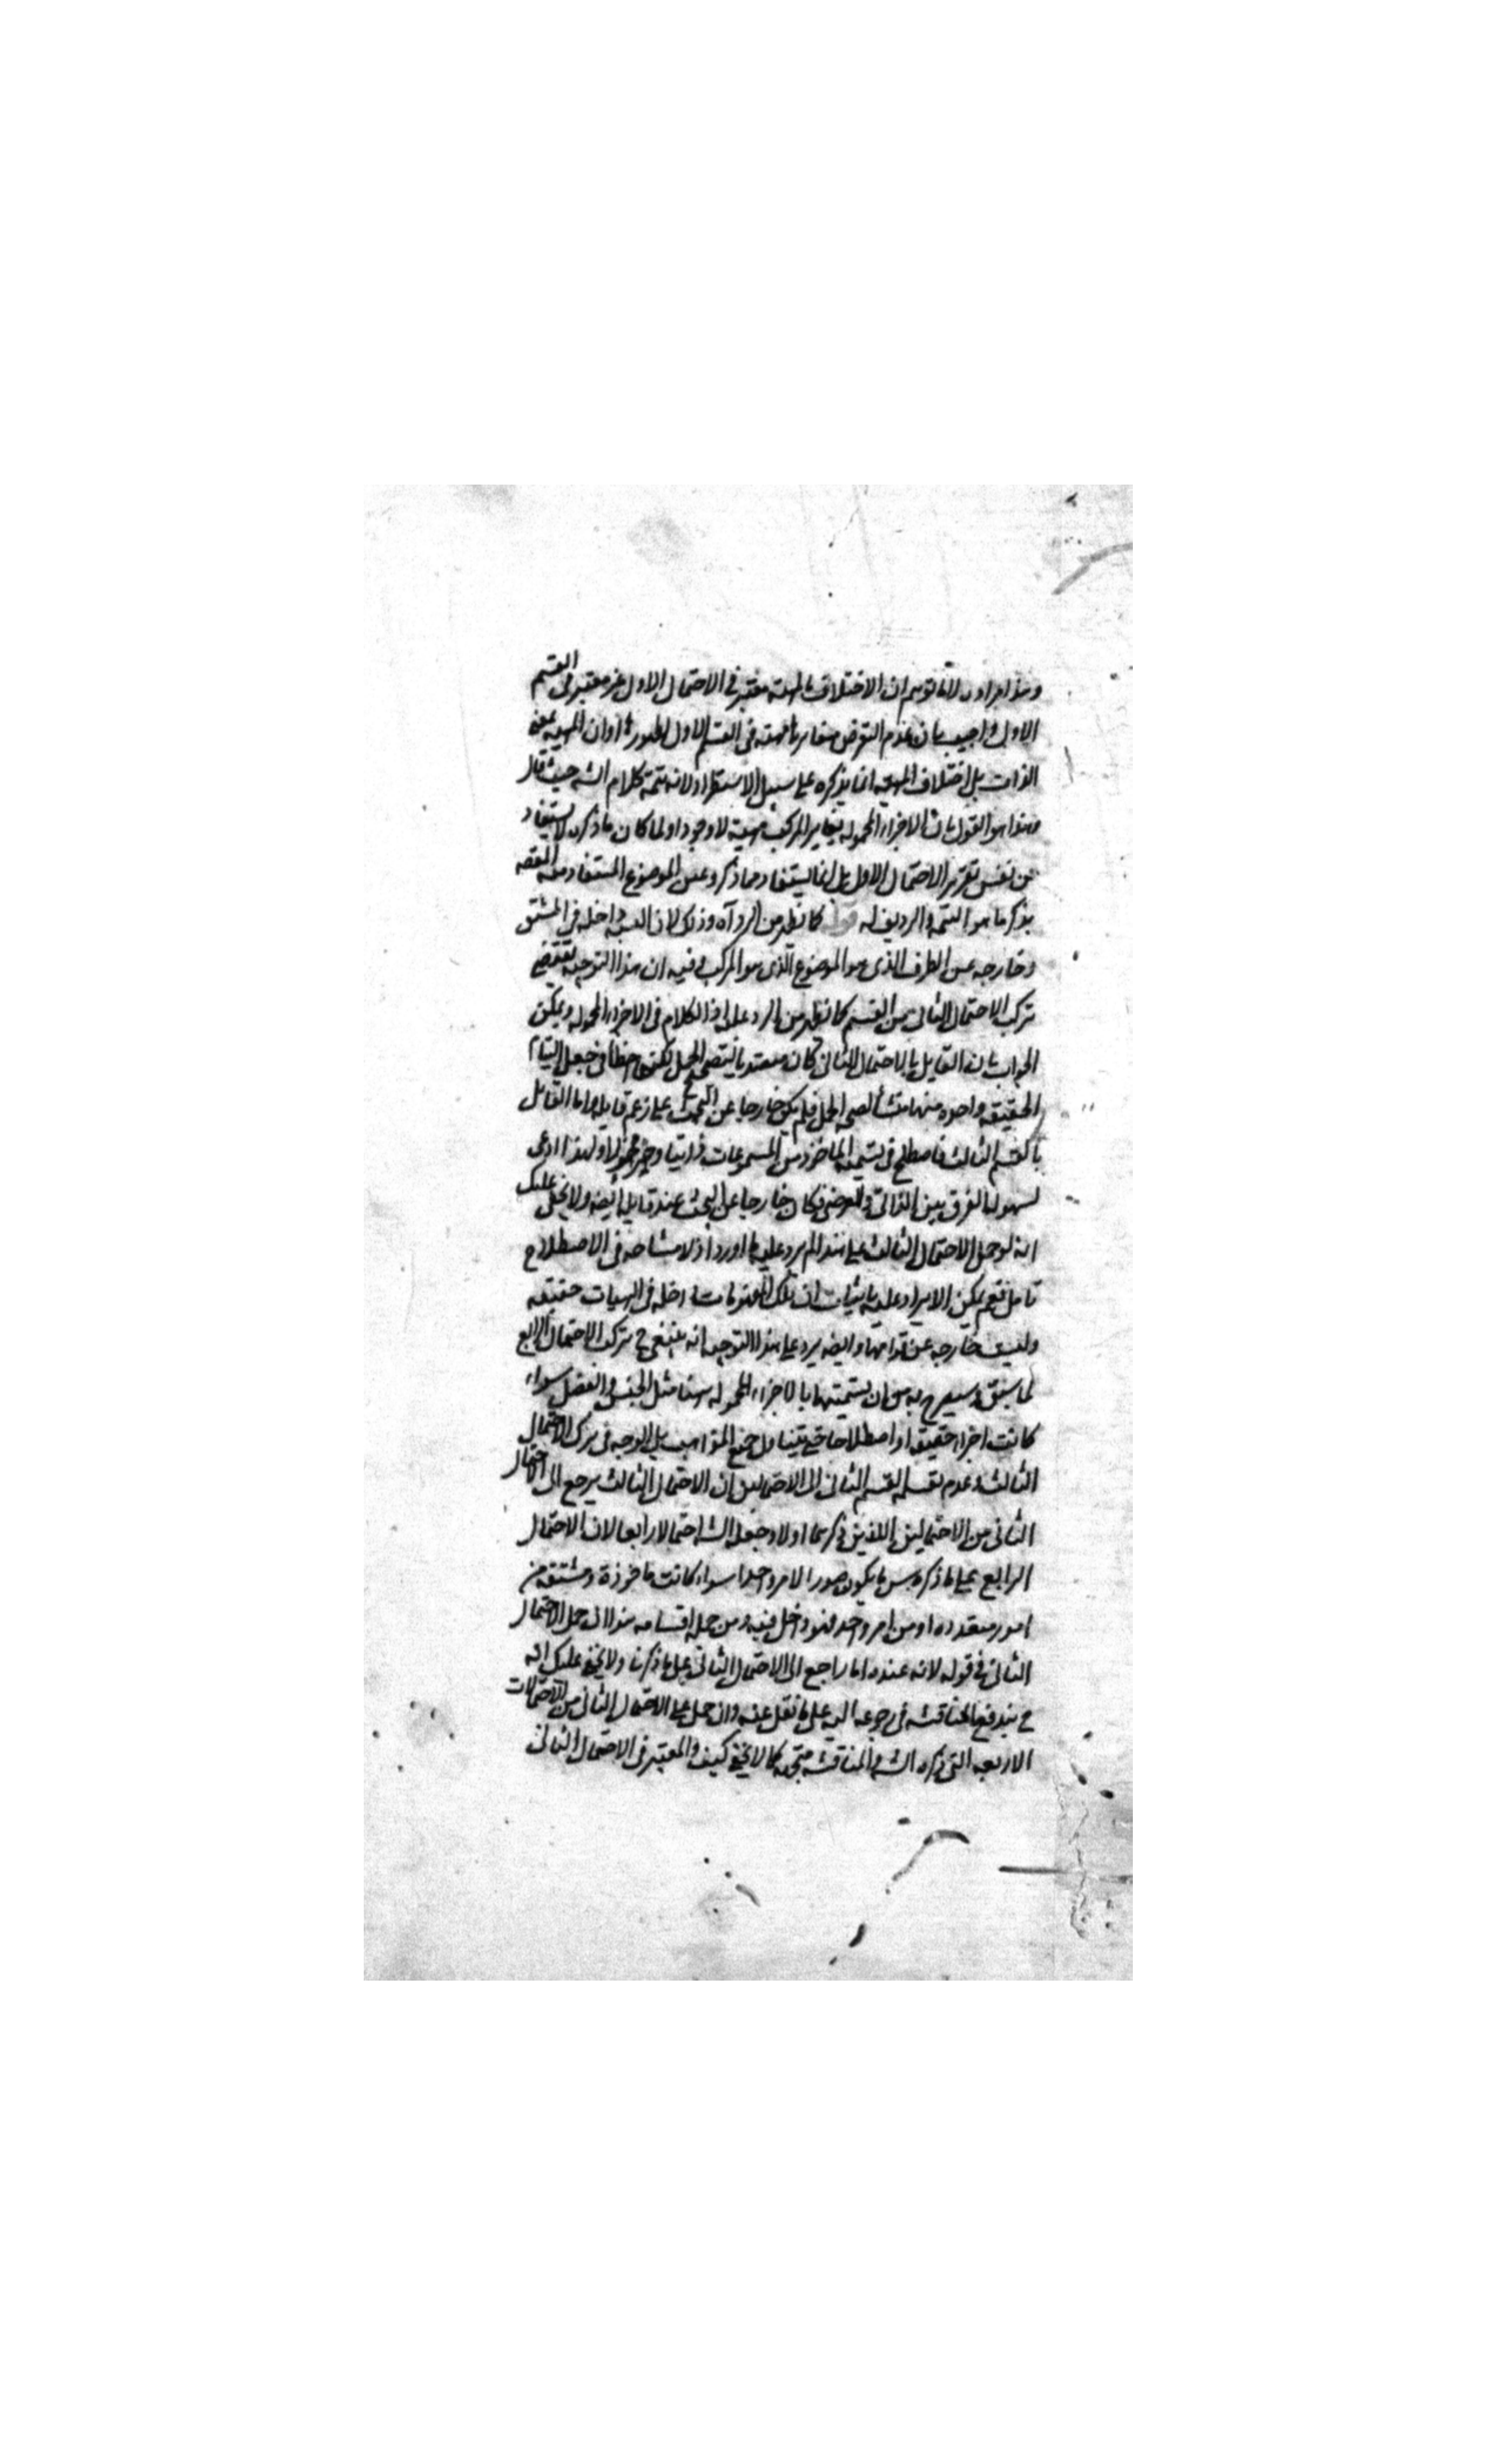 وهذا مراد من قال توهم ان الاختلاف بالمهية معتبر في الاحتمال الاول غير معتبر في القسم
الاول واجيب بان عدم التعرض مغايرتها مهية في القسم الاول لظهورها وان المهية بمعنى
الذات بل اختلاف المهية انما يذكره على سبيل الاستطراد لانه تتمة كلام الش حيث قال
وهذا هو القول بان الاجزاء المحمولة يغاير المركب مهية لا وجودا ولما كان ما ذكره لا يستفاد
من نفس تقرير الاحتمال الاول بل انما يستفاد مما ذكر وعين الموضوع المستفاد منه
بذكر ما هو التتمة والرديف له قوله كما نظر من الرد آه وذلك لان النسبة داخلة في المشتق
وخارجه عن الطرف الذى هو الموضوع الذى هو المركب فيه ان هذا التوجيه يقتضي
ترك الاحتمال الثانى من القسم كما نظر من الرد عليه اذ الكلام في الاجزاء المحمولة ويمكن
الجواب بان القايل بالاحتمال الثانى كان معتقدا بصحة الحمل لكنه اخطأ في جعل التيام
الحقيقة واحدة منها منشأ لصحة الحمل فلم يكن خارجا عن البحث على زعم قايله واما القائل
بالقسم الثالث فاصطلح في تسمية الماخوذ من المسموعات ذاتيا وجزء محمولا ولهذا ادعى
لسهولة الفرق بين الذاتى والعرضى فكان خارجا عن البحث عند قايله ايضه ولا يخفى عليك
انه لو حمل الاحتمال الثالث على هذا لم يرد عليه ما اورد اذ لا مشاحه في الاصطلاح
تامل نعم يمكن الايراد عليه باثبات ان تلك المفهومات داخلة في المهيات حقيقه
وليست خارجه عن قوامها وايضه يرد على هذا التوجيه انه ينبغى ح ترك الاحتمال الرابع
لما سبق وسيصرح به من ان تسميتها بالاجزاء المحمولة هنا مثل الجنس والفصل سواء
كانت اجزاء حقيقه او اصطلاحا حتى يتناول جميع المذاهب بل الوجه في ترك الاحتمال
الثالث وعدم تقسيم القسم الثانى الى الاحتمالين ان الاحتمال الثالث يرجع الى الاحتمال
الثانى من الاحتمالين اللذين ذكرهما اولا وجعله الش احتمالا رابعا لان الاحتمال
الرابع على ما ذكره هو ما يكون صورا لامر واحد سواء كانت ماخوذة ومشتقة من
امور متعدده او من امر واحد فهو داخل فيه ومن جملة اقسامه هذا ان حمل الاحتمال
الثانى في قوله لانه عنده اما راجع الى الاحتمال الثانى على ما ذكرنا ولا يخفى عليك انه
ح يندفع المناقشه في رجوعه اليه على ما نقل عنه وان حمل على الاحتمال الثانى من الاحتمالات
الاربعه التى ذكره الش فالمناقشه متجهه كما لا يخفى كيف والمعتبر في الاحتمال الثانى